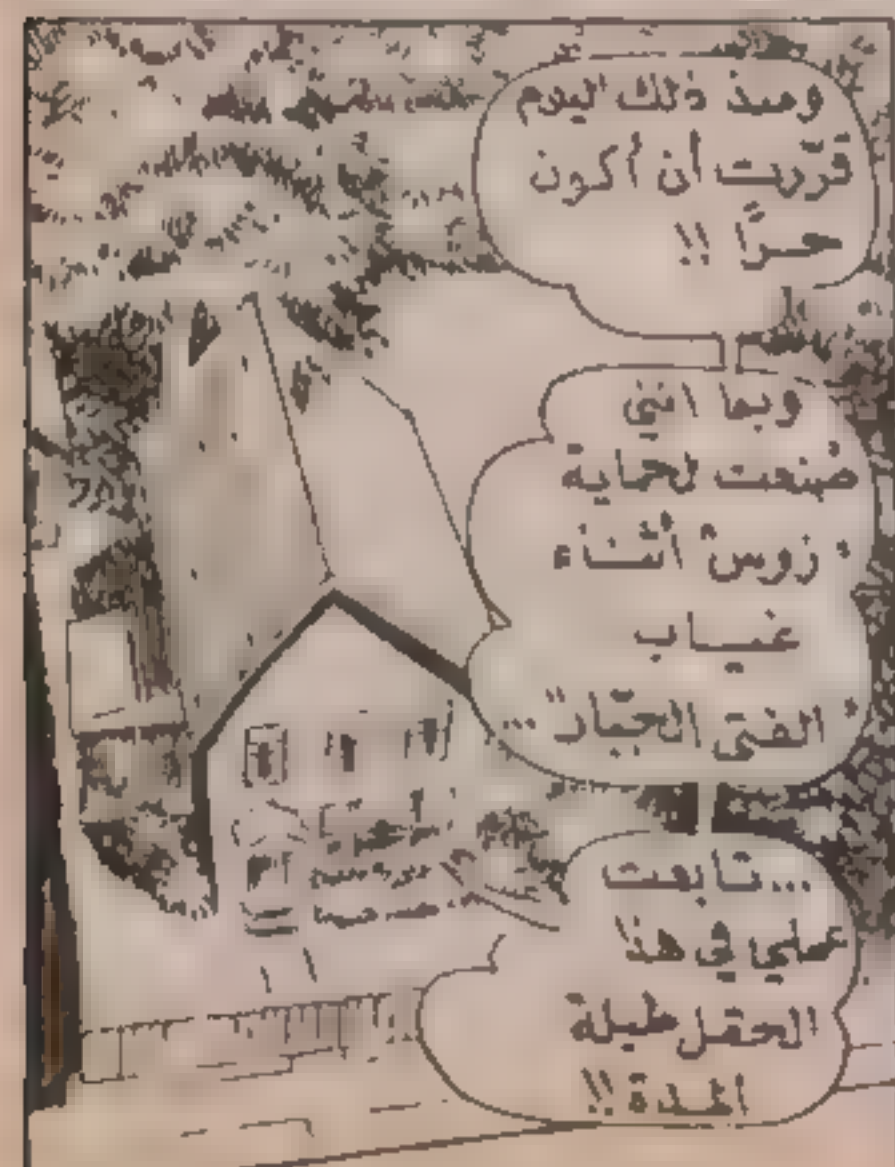 ومنذ ذلك اليوم
قرّرت أن أكون
حرًّا !!
وبما انني
صُنعت لحماية
"زوس" أثناء
غياب
"الفتى الجبّار"...
...تابعت
عملي في هذا
الحقل طيلة
المدة !!